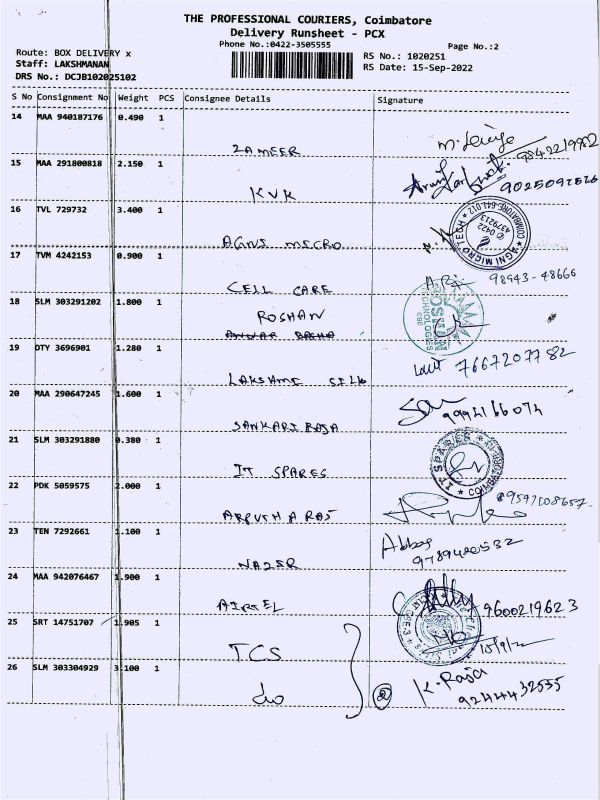 THE PROFESSIONAL COURIERS, Coimbatore
Delivery Runsheet - PCX
Phone No.:0422-3505555
Page No.:2
Route: BOX DELIVERY x
Staff: LAKSHMANAN
DRS No.: DCJB102025102
RS No.: 1020251
RS Date: 15-Sep-2022
S No Consignment No Weight PCS Consignee Details Signature
14 MAA 940187176 0.490 1
ZAMEER 9842219982
15 MAA 291800818 2.150 1
KVK
16 TVL 729732 3.400 1
AGNI MICRO
AGNI MICRO TECH COIMBATORE-641 012
0422 4379213
17 TVM 4242153 0.900 1
CELL CARE 98943-48666
18 SLM 303291202 1.800 1
ROSHAN
ANWAR BASHA
19 DTY 3696901 1.280 1
LAKSHMI SILK 7667207782
20 MAA 290647245 1.600 1
SANKARI RAJA 9994166074
21 SLM 303291880 0.380 1
IT SPARES
IT SPARES COIMBATORE
22 PDK 5059575 2.000 1
ARPUTHARAJ
23 TEN 7292661 1.100 1
NAZER Abbas 9789420532
24 MAA 942076467 1.900 1
AIRTEL 9600219623
25 SRT 14751707 1.905 1
TCS
26 SLM 303304929 3.100 1
do 2 K. Raja
9244432555